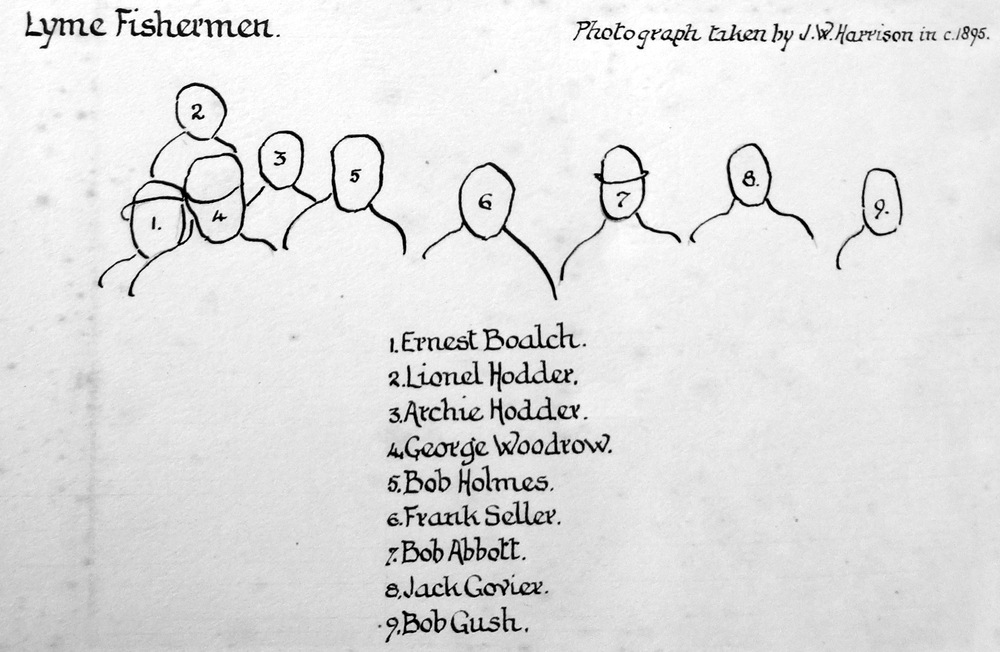 Lyme Fishermen.
Photograph taken by J.W.Harrison in c.1895.
2
3
5
1.
4
6
7
8.
9.
1.Ernest Boalch.
2.Lionel Hodder.
3.Archie Hodder.
4.George Woodrow.
5.Bob Holmes.
6.Frank Seller.
7.Bob Abbott.
8.Jack Govier.
9.Bob Gush.